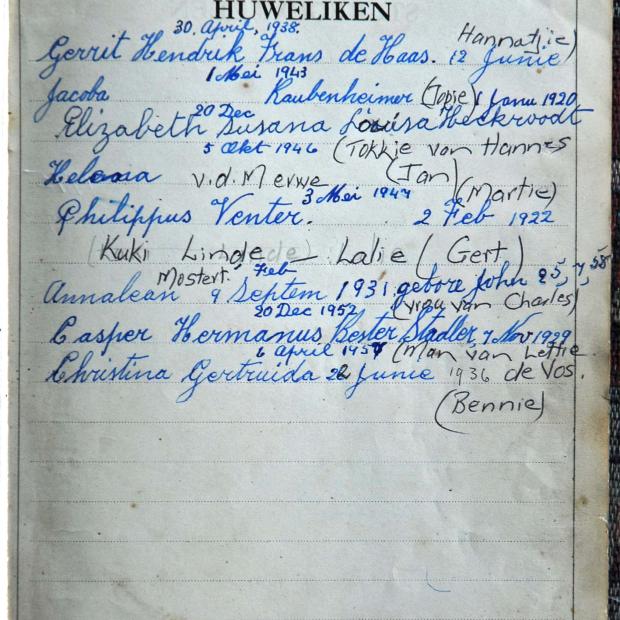 HUWELIKEN
30. April, 1938. Hannatjie)
Gerrit Hendrik Frans de Haas. 12 Junie
1 Mei 1943
Jacoba Raubenheimer (Topie) 1 Janu 1920
20 Dec
Elizabeth Susana Louisa Heckroodt
5 Okt 1946 (Tokkie van Hannes
Helena v.d. Merwe (Jan)
3 Mei 1947 (Martie)
Philippus Venter. 2 Feb 1922
Kuki Linde - Lalie (Gert)
Mostert. Feb
Annalean 9 Septem 1931 gebore John 25, 7, 58
20 Dec 1952 (vrou van Charles)
Casper Hermanus Bester Stadler 7 Nov 1929
6 April 1957 (Man van Lettie
Christina Gertruida 22 Junie 1936 de Vos.
(Bennie)